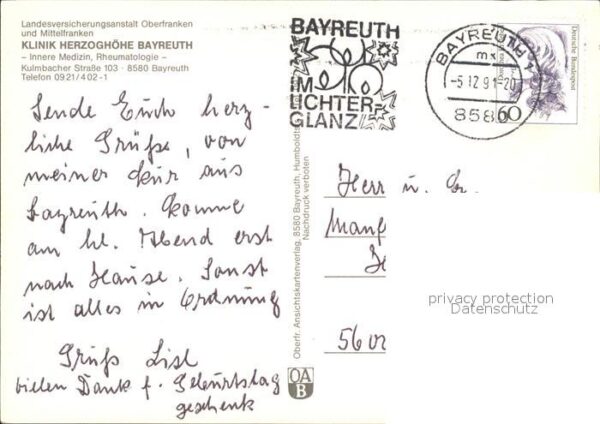 Landesversicherungsanstalt Oberfranken
und Mittelfranken
KLINIK HERZOGHÖHE BAYREUTH
– Innere Medizin, Rheumatologie –
Kulmbacher Straße 103 · 8580 Bayreuth
Telefon 0921/402-1
Sende Euch herz-
liche Grüße, von
meiner Kur aus
Bayreuth. Komme
am hl. Abend erst
nach Hause. Sonst
ist alles in Ordnung
Gruß Lisl
vielen Dank f. Geburtstag
geschenk
Oberfr. Ansichtskartenverlag, 8580 Bayreuth, Humboldts
Nachdruck verboten
OA
B
BAYREUTH
IM
LICHTER-
GLANZ
BAYREUTH 1
mx
-5.12.91-20
8580
60
Deutsche Bundespost
Herr u. Fr.
Manf
560
privacy protection
Datenschutz